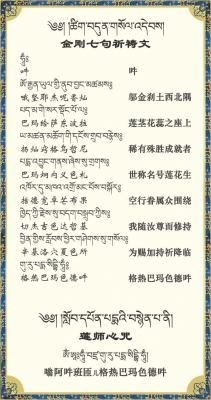 ༄༅། །ཚིག་བདུན་གསོལ་འདེབས།
金刚七句祈祷文
ཧཱུྃ༔
吽 吽
ཨོ་རྒྱན་ཡུལ་གྱི་ནུབ་བྱང་མཚམས༔
哦坚耶杰呢香灿 邬金刹土西北隅
པདྨ་གེ་སར་སྡོང་པོ་ལ༔
巴玛给萨东波拉 莲茎花蕊之座上
ཡ་མཚན་མཆོག་གི་དངོས་གྲུབ་བརྙེས༔
杨灿乔格鸥哲尼 稀有殊胜成就者
པདྨ་འབྱུང་གནས་ཞེས་སུ་གྲགས༔
巴玛炯内义色札 世称名号莲花生
འཁོར་དུ་མཁའ་འགྲོ་མང་པོས་བསྐོར༔
括德宽卓芒布果 空行眷属众围绕
ཁྱེད་ཀྱི་རྗེས་སུ་བདག་བསྒྲུབ་ཀྱིས༔
切杰吉色达哲基 我随汝尊而修持
བྱིན་གྱིས་རློབས་ཕྱིར་གཤེགས་སུ་གསོལ༔
辛基洛穴夏色所 为赐加持祈降临
གུ་རུ་པདྨ་སིདྡྷི་ཧཱུྃ༔
格热巴玛色德吽 格热巴玛色德吽
༄༅། །སློབ་དཔོན་པདྨའི་བསྙེན་པ་ནི།
莲师心咒
ཨོཾ་ཨཱཿཧཱུྃ་བཛྲ་གུ་རུ་པདྨ་སིདྡྷི་ཧཱུྃ༔
嗡阿吽班匝儿格热巴玛色德吽